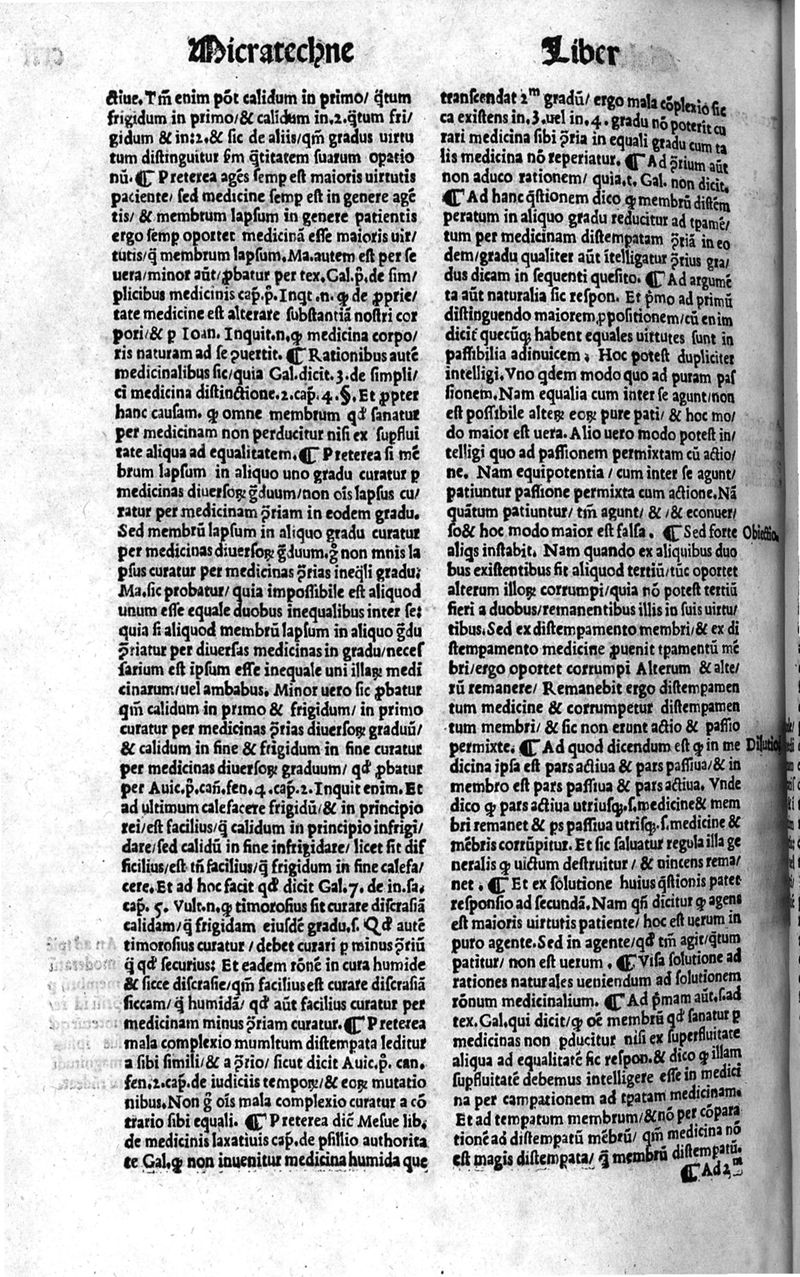 Micratechne Liber
ctiue. Tm̃ enim põt calidum in primo/ q̃tum
frigidum in primo/ & calidum in .2. q̃tum fri/
gidum & in :2. & sic de aliis/ qm̃ gradus uirtu
tum distinguitur s̃m q̃titatem suarum opatio
nũ. ¶ Preterea agẽs semp est maioris uirtutis
paciente/ sed medicine semp est in genere agẽ
tis/ & membrum lapsum in genere patientis
ergo semp oportet medicinã esse maioris uir/
tutis/ q̃ membrum lapsum. Ma. autem est per se
uera/ minor aũt/ ꝓbatur per tex. Gal. p̃. de sim/
plicibus medicinis cap̃. p̃. Inqt .n. ꝙ de ꝓprie/
tate medicine est alterare substantiã nostri cor
pori/ & p Ioan. Inquit .n. ꝙ medicina corpo/
ris naturam ad se ꝯuertit. ¶ Rationibus autẽ
medicinalibus sic/ quia Gal. dicit .3. de simpli/
ci medicina distinctione .2. cap̃. 4. §. Et ꝓpter
hanc causam. ꝙ omne membrum qd̃ sanatur
per medicinam non perducitur nisi ex supflui
tate aliqua ad equalitatem. ¶ Preterea si mẽ
brum lapsum in aliquo uno gradu curatur p
medicinas diuersoꝝ g̃duum/ non oĩs lapsus cu/
ratur per medicinam ꝯ̃riam in eodem gradu.
Sed membrũ lapsum in aliquo gradu curatur
per medicinas diuersoꝝ g̃duum. g̃ non mnis la
psus curatur per medicinas ꝯ̃rias ineq̃li gradu:
Ma. sic probatur/ quia impossibile est aliquod
unum esse equale duobus inequalibus inter se:
quia si aliquod membrũ lapsum in aliquo g̃du
ꝯ̃riatur per diuersas medicinas in gradu/ neces
sarium est ipsum esse inequale uni illaꝝ medi
cinarum/ uel ambabus. Minor uero sic ꝓbatur
qm̃ calidum in primo & frigidum/ in primo
curatur per medicinas ꝯ̃rias diuersoꝝ graduũ/
& calidum in fine & frigidum in fine curatur
per medicinas diuersoꝝ graduum/ qd̃ ꝓbatur
per Auic. p̃. cañ. fen. 4. cap̃. 2. Inquit enim. Et
ad ultimum calefacere frigidũ/ & in principio
rei/ est facilius/ q̃ calidum in principio infrigi/
dare/ sed calidũ in fine infrigidare/ licet sit dif
ficilius/ est tñ facilius/ q̃ frigidum in fine calefa/
cere. Et ad hoc facit qd̃ dicit Gal. 7. de in. sa.
cap̃. 5. Vult .n. ꝙ timorosius sit curare discrasiã
calidam/ q̃ frigidam eiusdẽ gradu. s. Qd̃ autẽ
timorosius curatur/ debet curari p minus ꝯ̃riũ
q̃ qd̃ securius: Et eadem rõne in cura humide
& sicce discrasie/ qm̃ facilius est curare discrasiã
siccam/ q̃ humidã/ qd̃ aũt facilius curatur per
medicinam minus ꝯ̃riam curatur. ¶ Preterea
mala complexio mumltum distempata leditur
a sibi simili/ & a ꝯ̃rio/ sicut dicit Auic. p̃. can.
fen. 2. cap̃. de iudiciis tempoꝝ/ & eoꝝ mutatio
nibus. Non g̃ oĩs mala complexio curatur a cõ
trario sibi equali. ¶ Preterea dic̃ Mesue lib.
de medicinis laxatiuis cap̃. de psillio authorita
te Gal. ꝙ non inuenitur medicina humida que
transcendat 2m gradũ/ ergo mala cõplexio sic
ca existens in .3. uel in .4. gradu nõ poterit cu
rari medicina sibi ꝯ̃ria in equali gradu cum ta
lis medicina nõ reperiatur. ¶ Ad ꝯ̃rium aũt
non aduco rationem/ quia .t. Gal. non dicit.
¶ Ad hanc q̃stionem dico ꝙ membrũ distẽm
peratum in aliquo gradu reducitur ad tpamẽ/
tum per medicinam distempatam ꝯ̃riã in eo
dem/ gradu qualiter aũt ĩtelligatur ꝯ̃rius gra/
dus dicam in sequenti quesito. ¶ Ad argumẽ
ta aũt naturalia sic respon. Et p̃mo ad primũ
distinguendo maiorem, ꝓpositionem/ cũ enim
dicit̃ quecũꝗ habent equales uirtutes sunt in
passibilia adinuicem. Hoc potest dupliciter
intelligi. Vno qdem modo quo ad puram pas
sionem. Nam equalia cum inter se agunt/ non
est possibile alteꝝ eoꝝ pure pati/ & hoc mo/
do maior est uera. Alio uero modo potest in/
telligi quo ad passionem permixtam cũ actio/
ne. Nam equipotentia/ cum inter se agunt/
patiuntur passione permixta cum actione. Nã
quãtum patiuntur/ tm̃ agunt/ & /& econuer/
so & hoc modo maior est falsa. ¶ Sed forte
Obiectio.
aliqs instabit. Nam quando ex aliquibus duo
bus existentibus fit aliquod tertiũ/ tũc oportet
alterum illoꝝ corrumpi/ quia nõ potest tertiũ
fieri a duobus/ remanentibus illis in suis uirtu/
tibus. Sed ex distempamento membri/ & ex di
stempamento medicine ꝓuenit tpamentũ mẽ
bri/ ergo oportet corrumpi Alterum & alte/
rũ remanere/ Remanebit ergo distempamen
tum medicine & corrumpetur distempamen
tum membri/ & sic non erunt actio & passio
permixte. ¶ Ad quod dicendum est ꝙ in me
Dilutio
dicina ipsa est pars actiua & pars passiua/ & in
membro est pars passiua & pars actiua. Vnde
dico ꝙ pars actiua utriusꝗ .s. medicine & mem
bri remanet & ps passiua utrisꝗ .s. medicine &
mẽbris corrũpitur. Et sic saluatur regula illa ge
neralis ꝙ uictum destruitur/ & nincens rema/
net. ¶ Et ex solutione huius q̃stionis patet
responsio ad secundã. Nam qñ dicitur ꝙ agens
est maioris uirtutis patiente/ hoc est uerum in
puro agente. Sed in agente/ qd̃ tm̃ agit/ q̃tum
patitur/ non est uerum. ¶ Visa solutione ad
rationes naturales ueniendum ad solutionem
rõnum medicinalium. ¶ Ad p̃mam aũt. s. ad
tex. Gal. qui dicit/ ꝙ oẽ membrum qd̃ sanatur p
medicinas non ꝑducitur nisi ex superfluitate
aliqua ad equalitatẽ sic respon. & dico ꝙ illam
supfluitatẽ debemus intelligere esse in medici
na per campationem ad tpatam medicinam.
Et ad tempatum membrum/ & nõ per cõpara
tionẽ ad distempatũ mẽbrũ/ qm̃ medicina nõ
est magis distempata/ q̃ membrũ distempatũ.
¶ Ad 2m